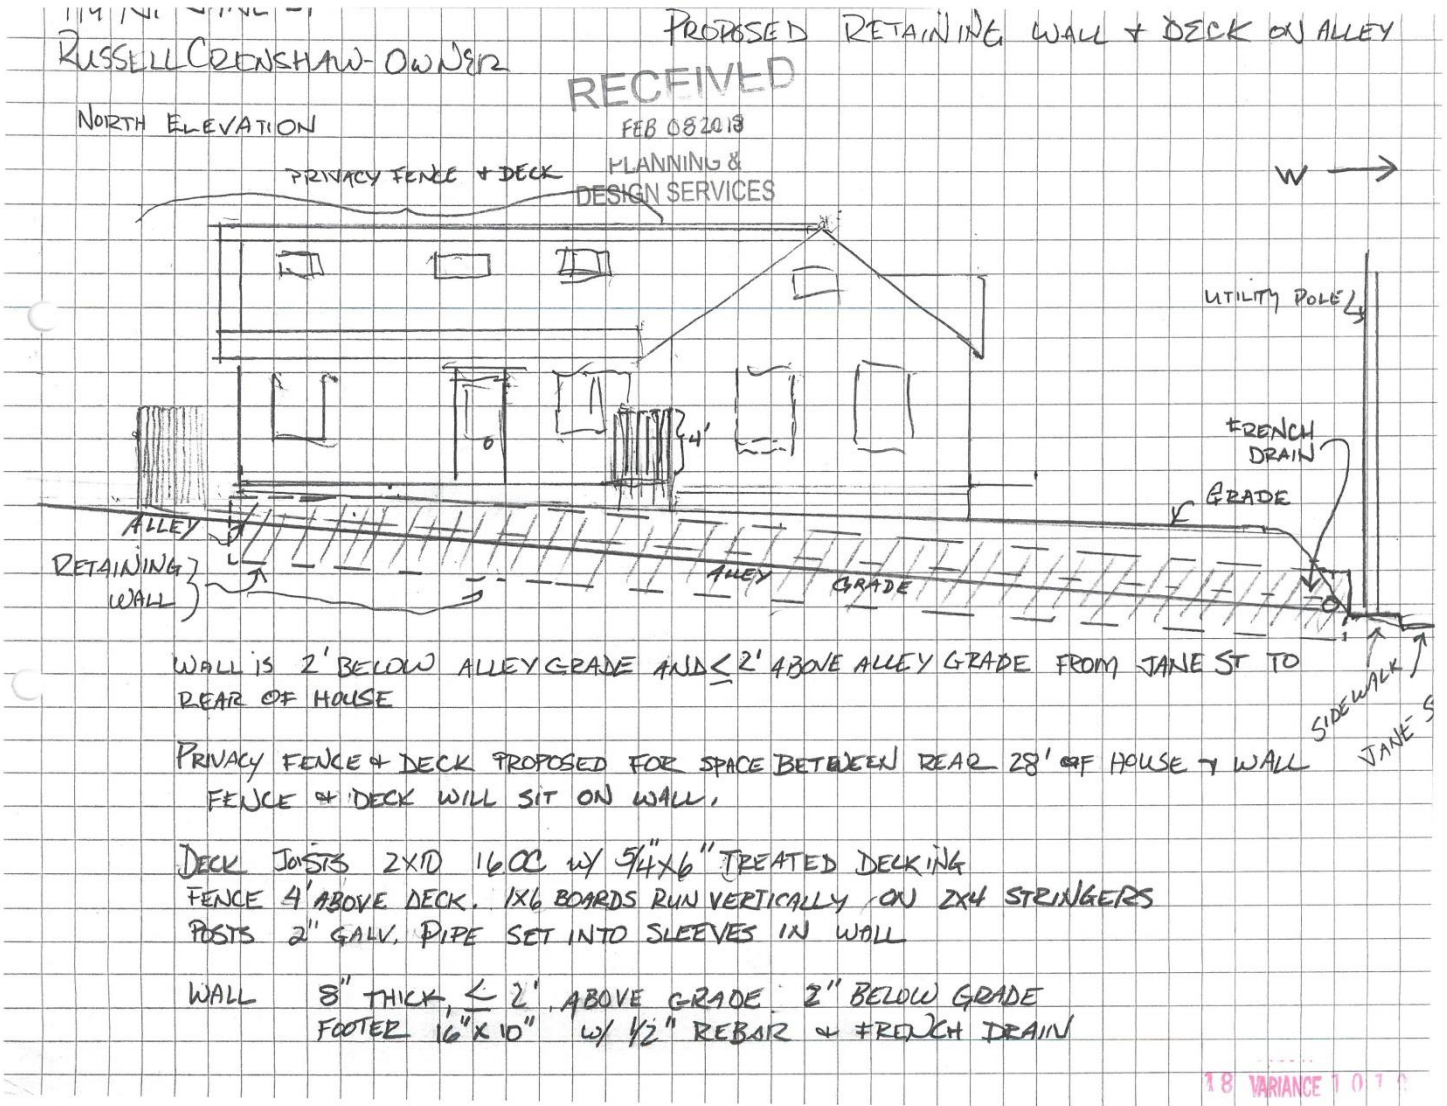 PROPOSED RETAINING WALL & DECK ON ALLEY
RUSSELL CRENSHAW - OWNER
RECEIVED
FEB 08 2018
PLANNING &
DESIGN SERVICES
NORTH ELEVATION
PRIVACY FENCE & DECK
W
UTILITY POLE
4'
FRENCH
DRAIN
GRADE
ALLEY
RETAINING
WALL
ALLEY GRADE
SIDEWALK
JANE S
WALL IS 2' BELOW ALLEY GRADE AND ≤ 2' ABOVE ALLEY GRADE FROM JANE ST TO
REAR OF HOUSE
PRIVACY FENCE & DECK PROPOSED FOR SPACE BETWEEN REAR 28' OF HOUSE & WALL
FENCE & DECK WILL SIT ON WALL.
DECK JOISTS 2X10 16 OC W/ 5/4"X6" TREATED DECKING
FENCE 4' ABOVE DECK. 1X6 BOARDS RUN VERTICALLY ON 2X4 STRINGERS
POSTS 2" GALV. PIPE SET INTO SLEEVES IN WALL
WALL 8" THICK, ≤ 2' ABOVE GRADE 2" BELOW GRADE
FOOTER 16"X10" W/ 1/2" REBAR & FRENCH DRAIN
18 VARIANCE 1 0